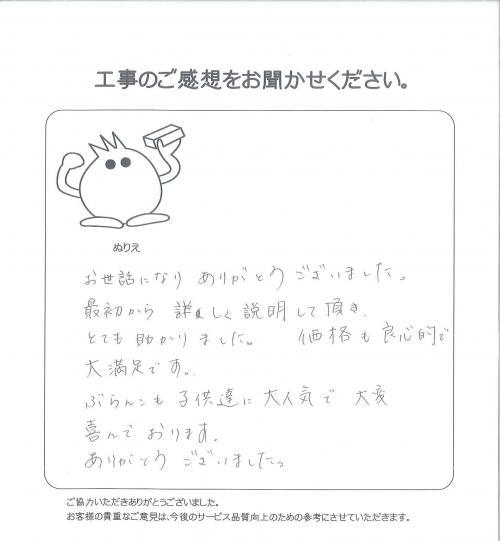 工事のご感想をお聞かせください。
ぬりえ
お世話になり ありがとう ございました。
最初から 詳しく 説明して頂き、
とても 助かりました。 価格も良心的で
大満足です。
ぶらんこも 子供達に 大人気で 大変
喜んで おります。
ありがとう ございました。
ご協力いただきありがとうございました。
お客様の貴重なご意見は、今後のサービス品質向上のための参考にさせていただきます。